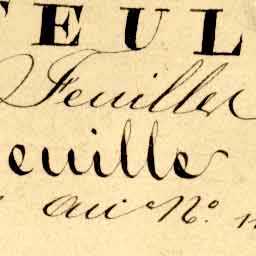 FEUL
Feuillet
euille
au N°.